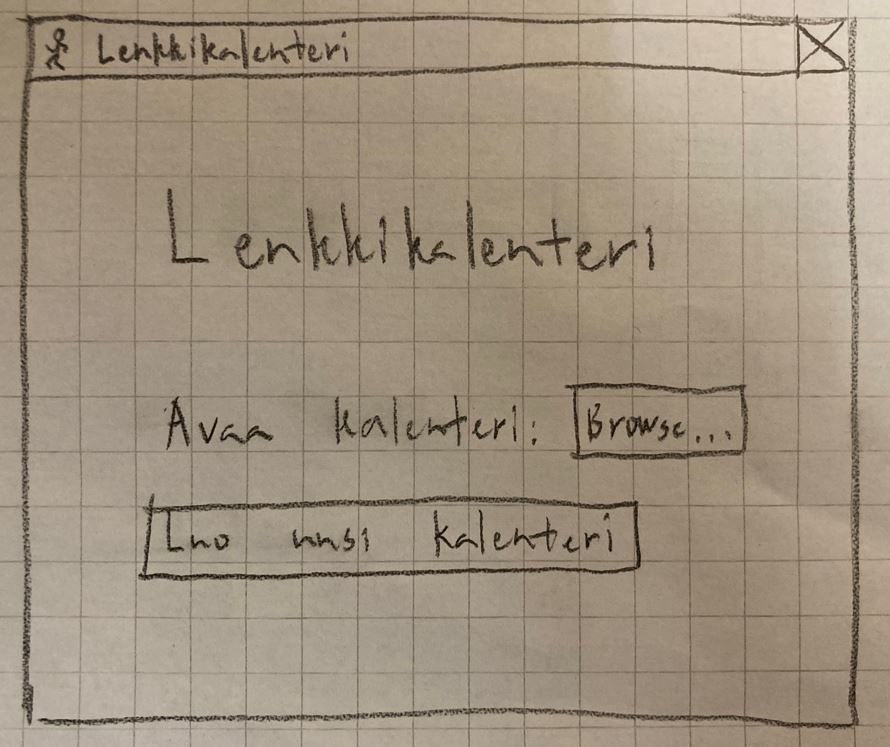 Lenkkikalenteri
Lenkkikalenteri
Avaa kalenteri: Browse...
Luo uusi kalenteri